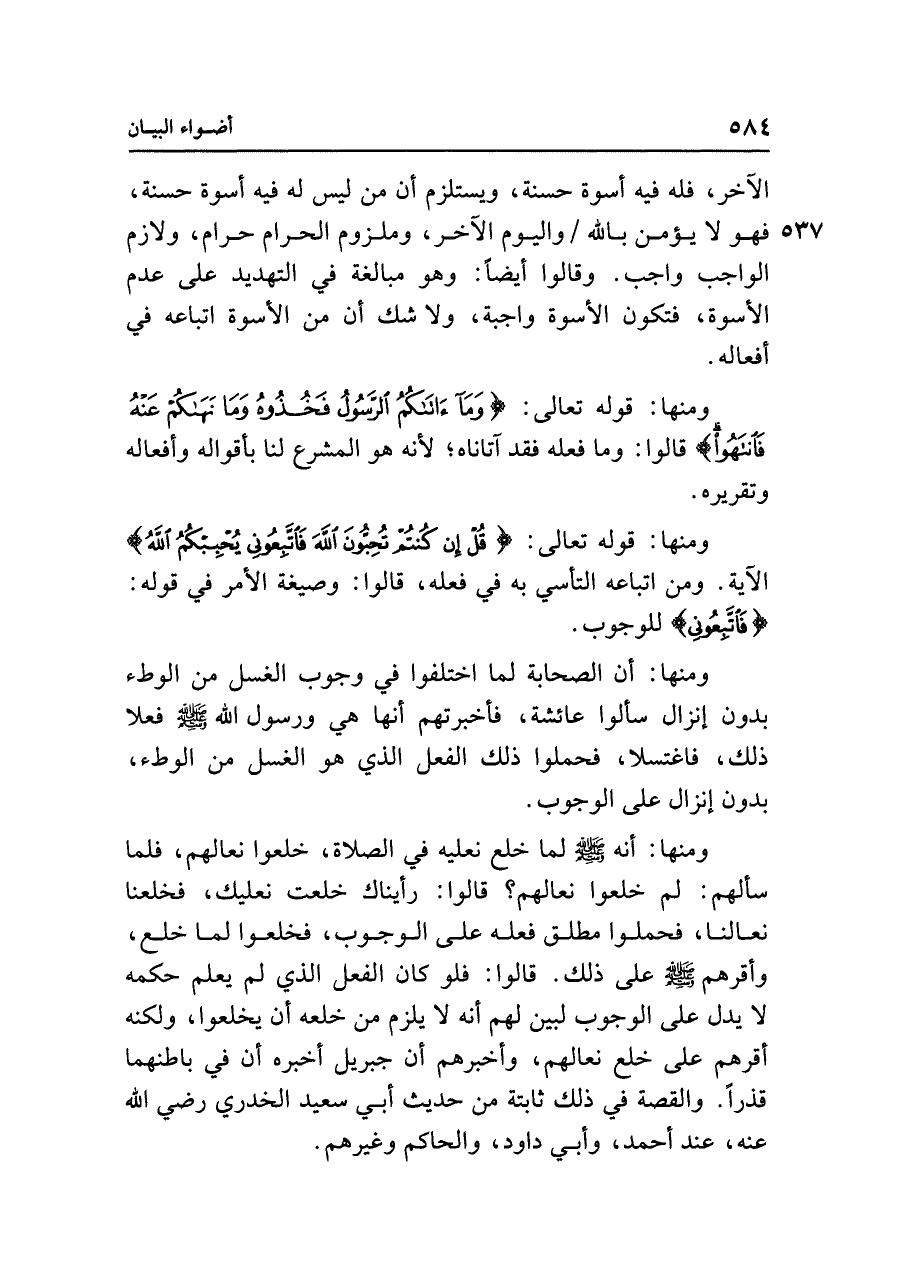 ٥٨٤ أضواء البيان
الآخر، فله فيه أسوة حسنة، ويستلزم أن من ليس له فيه أسوة حسنة،
٥٣٧ فهو لا يؤمن بالله / واليوم الآخر، وملزوم الحرام حرام، ولازم
الواجب واجب. وقالوا أيضاً: وهو مبالغة في التهديد على عدم
الأسوة، فتكون الأسوة واجبة، ولا شك أن من الأسوة اتباعه في
أفعاله.
ومنها: قوله تعالى: ﴿وَمَآ ءَاتَىٰكُمُ ٱلرَّسُولُ فَخُـذُوهُ وَمَا نَهَىٰكُمْ عَنْهُ
فَٱنتَهُوا۟ۚ﴾ قالوا: وما فعله فقد آتاناه؛ لأنه هو المشرع لنا بأقواله وأفعاله
وتقريره.
ومنها: قوله تعالى: ﴿قُلْ إِن كُنتُمْ تُحِبُّونَ ٱللَّهَ فَٱتَّبِعُونِى يُحْبِبْكُمُ ٱللَّهُ﴾
الآية. ومن اتباعه التأسي به في فعله، قالوا: وصيغة الأمر في قوله:
﴿فَٱتَّبِعُونِى﴾ للوجوب.
ومنها: أن الصحابة لما اختلفوا في وجوب الغسل من الوطء
بدون إنزال سألوا عائشة، فأخبرتهم أنها هي ورسول الله ﷺ فعلا
ذلك، فاغتسلا، فحملوا ذلك الفعل الذي هو الغسل من الوطء،
بدون إنزال على الوجوب.
ومنها: أنه ﷺ لما خلع نعليه في الصلاة، خلعوا نعالهم، فلما
سألهم: لم خلعوا نعالهم؟ قالوا: رأيناك خلعت نعليك، فخلعنا
نعالنا، فحملوا مطلق فعله على الوجوب، فخلعوا لما خلع،
وأقرهم ﷺ على ذلك. قالوا: فلو كان الفعل الذي لم يعلم حكمه
لا يدل على الوجوب لبين لهم أنه لا يلزم من خلعه أن يخلعوا، ولكنه
أقرهم على خلع نعالهم، وأخبرهم أن جبريل أخبره أن في باطنهما
قذراً. والقصة في ذلك ثابتة من حديث أبي سعيد الخدري رضي الله
عنه، عند أحمد، وأبي داود، والحاكم وغيرهم.